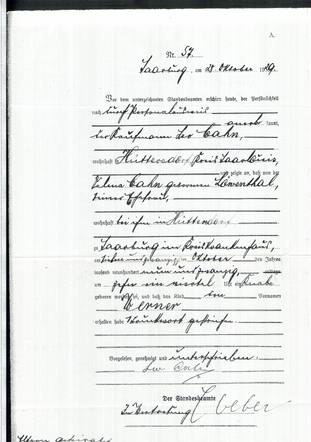 A.
Nr. 57.
Saarburg, am 28. Oktober 1929.
Vor dem unterzeichneten Standesbeamten erschien heute, der Persönlichkeit
nach durch Personalausweis
anerkannt,
der Kaufmann Leo Cahn,
wohnhaft Hüttersdorf Kreis Saarlouis,
und zeigte an, daß von der
Selma Cahn geborenen Löwenthal,
seiner Ehefrau,
wohnhaft bei ihm in Hüttersdorf
zu Saarburg im Kreiskrankenhaus,
am siebenundzwanzigsten Oktober des Jahres
tausend neunhundert neunundzwanzig
um zehn ein viertel Uhr ein Knabe
geboren worden sei, und daß das Kind den Vornamen
Werner
erhalten habe. Druckwort gestrichen.
Vorgelesen, genehmigt und unterschrieben.
Leo Cahn
Der Standesbeamte
In Vertretung Weber